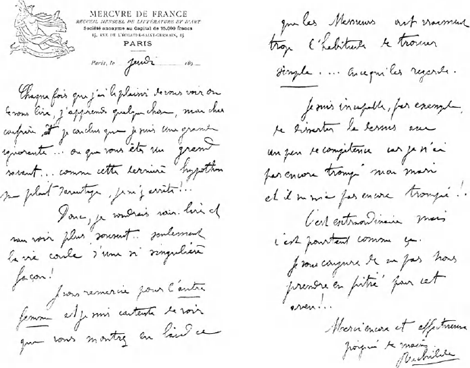 MERCVRE DE FRANCE
RECUEIL MENSUEL DE LITTÉRATURE ET D'ART
Société anonyme au Capital de 75.000 francs
15, RUE DE L'ÉCHAUDÉ-SAINT-GERMAIN, 15
PARIS
Paris, le jeudi 189
Chaque fois que j'ai le plaisir de vous voir ou
de vous lire, j'apprends quelque chose, mon cher
confrère et je conclus que je suis une grande
ignorante... ou que vous êtes un grand
savant... comme cette dernière hypothèse
me plaît davantage, je m'y arrête!...
Donc, je voudrais vous lire et
vous voir plus souvent... seulement
la vie coule d'une si singulière
façon!
Je vous remercie pour l'autre
femme et je suis contente de voir
que vous montrez en
que les Messieurs ont vraiment
trop l'habitude de trouver
simple.... ce qui les regarde.
Je suis incapable, par exemple,
de disserter là-dessus avec
un peu de compétence car je n'ai
pas encore trompé mon mari
et il ne m'a pas encore trompée!!
C'est extraordinaire mais
c'est pourtant comme ça.
Je vous conjure de ne pas nous
prendre en pitié pour cet
aveu!...
Merci encore et affectueuse
poignée de main
Rachilde